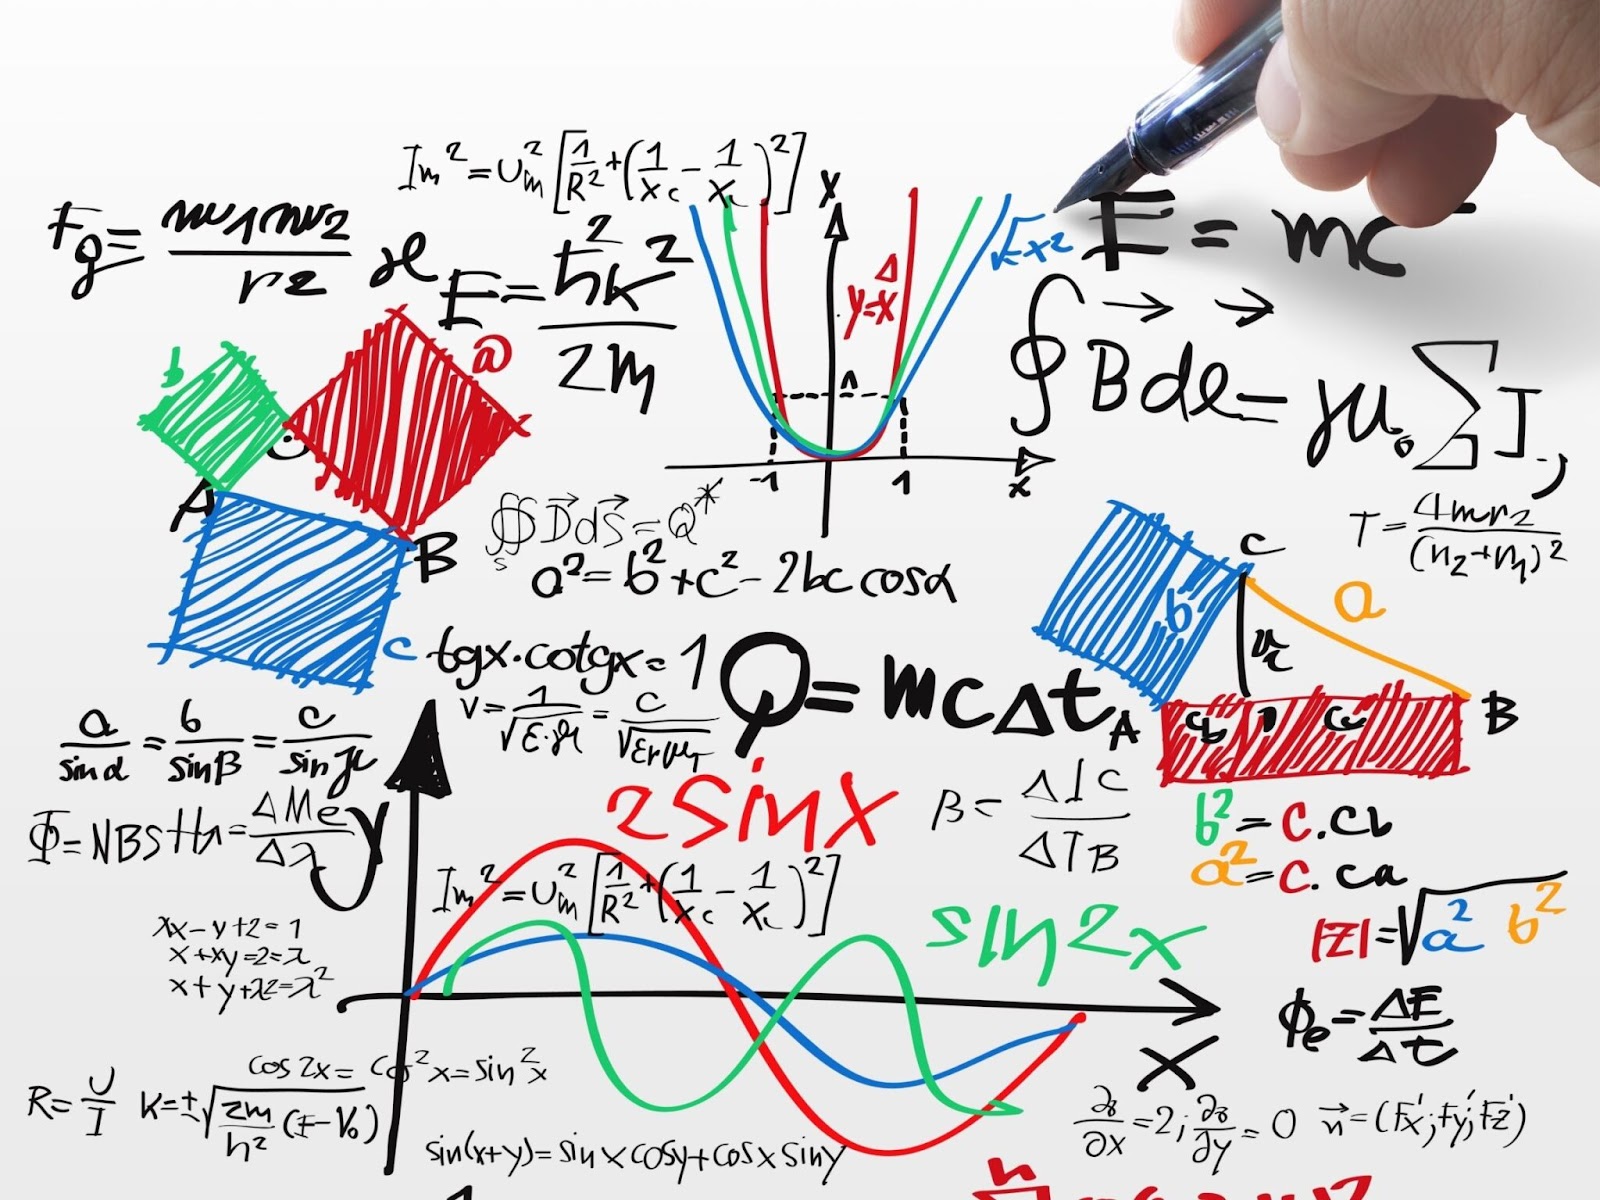 Im² = Um² [1/R² + (1/Xc - 1/XL)²]
Fg = m1m2/r² ϰ
E = ħ²k²/2m
y
y=x⁴
√x²
E = mc
∮ B⃗ dℓ = μ₀ ∑ I
b
a
1
-1
1
x
A
B
∯ D⃗ dS⃗ = Q*
s
a² = b² + c² - 2bc cosα
T = 4n1n2/(n2+n1)²
C
b
a
c
tgx.cotgx = 1
Q = mcΔt
A
B
v = 1/√ε.μ = c/√εrμr
a/sinα = b/sinβ = c/sinγ
2sinx
β = ΔIC/ΔIB
b² = c.cb
a² = c.ca
Φ = NBS
ΔMe/Δλ
y
Im² = Um² [1/R² + (1/Xc - 1/XL)²]
|z| = √a² b²
sin2x
x+λy=2=λ
x+y+λ2=λ²
Φe = ΔE/Δt
x
cos2x = cos²x = sin²x
R = U/I
k = ±√2m/ħ²(E-V₀)
∂z/∂x = 2; ∂z/∂y = 0
n⃗ = (Fx'; Fy'; Fz')
sin(x+y) = sinxcosy + cosxsiny